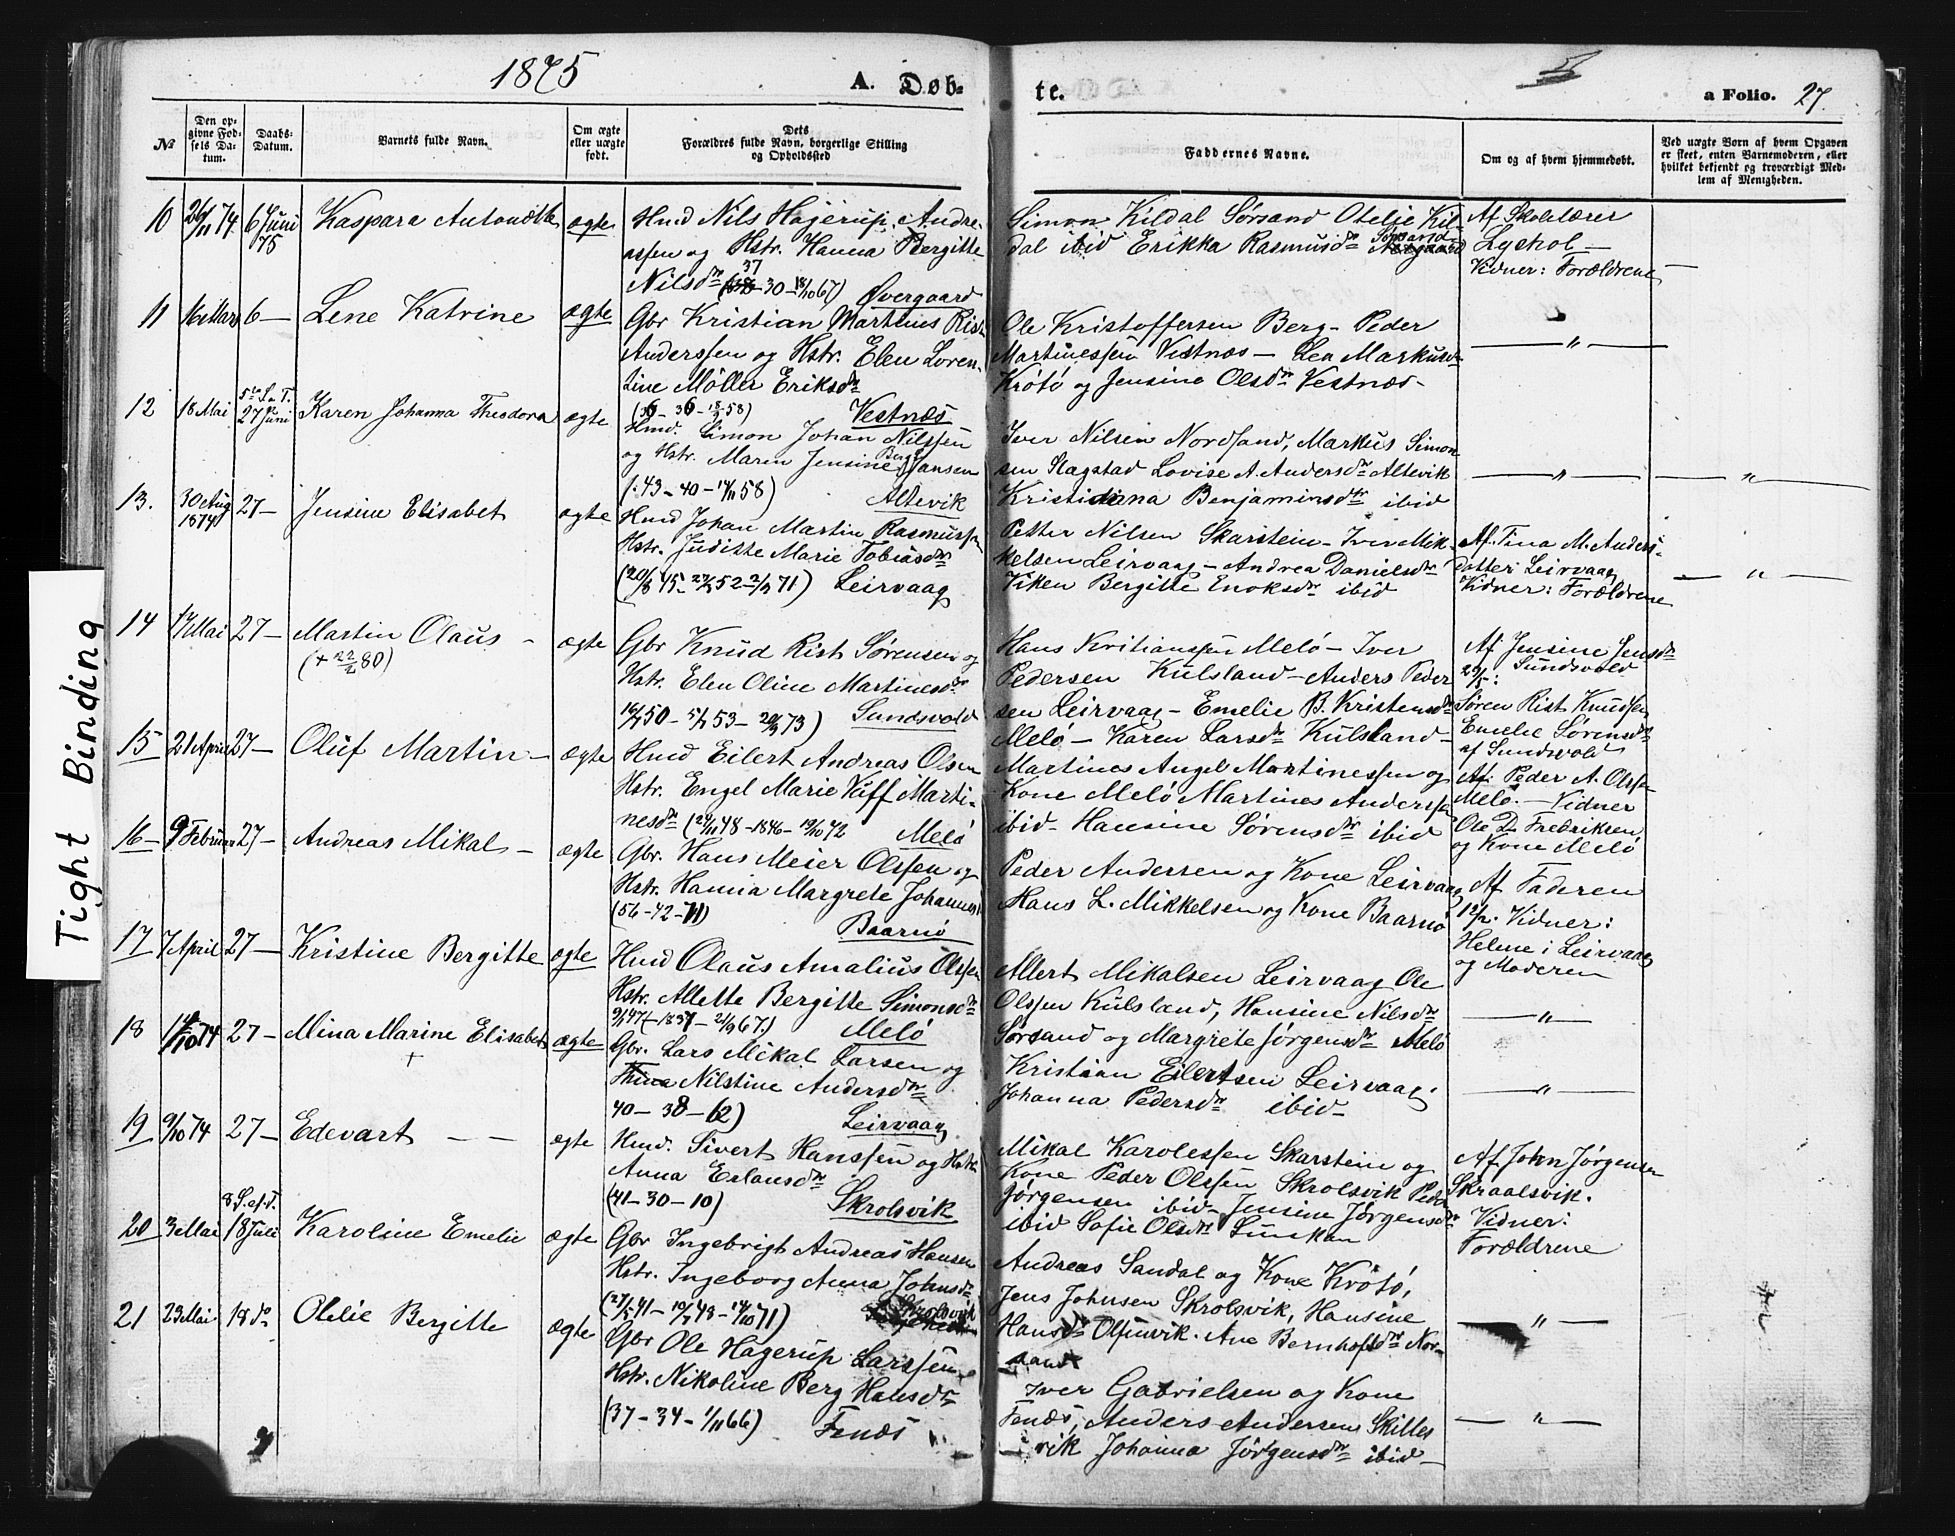 1875
A. Døb-
te.
a Folio. 27.
Tight Binding
№
Den op-
givne Fød-
sels Da-
tum.
Daabs-
Datum.
Barnets fulde Navn.
Om ægte
eller uægte
født.
Dets
Forældres fulde Navn, borgerlige Stilling
og Opholdssted
Faddernes Navne.
Om og af hvem hjemmedøbt.
Ved uægte Børn af hvem Opgaven
er skeet, enten Barnemoderen, eller
hvilket bekjendt og troværdigt Med-
lem af Menigheden.
10 26/11 74 6 Juni 75 Kaspara Antonette ægte
Hmd Nils Hagerup Andre-
assen og Hstr. Hanna Bergitte
Nilsdtr (37-30-18/10 67) Øvergaard
Simon Kildal Sørsand Otelie Kil-
dal ibid Erikka Rasmusdtr Sørsand
Af Skolelærer
Lyshol —
Vidner: Forældrene
11 16 Mars 6 — Lene Katrine ægte
Gbr Kristian Martinus Rist
Anderssen og Hstr. Elen Loren-
tine Møller Eriksdtr
(36-36-18/7 58) Vestnæs
Ole Kristoffersen Berg - Peder
Martinessen Vestnæs - Lea Markusdtr
Krøtø og Jensine Olsdtr Vestnæs -
— " —
12 18 Mai 5te S. e. T. 27 Juni Karen Johanna Theodora ægte
Hmd. Simon Johan Nilssen
og Hstr. Maren Jensine Berg Jansen
(:43-40-14/11 58) Altevik
Iver Nilsen Nordsand, Markus Simon-
sen Slagstad Lovise A. Andersdtr Altevik
Kristianna Benjaminsdtr ibid
— " — — " —
13. 30 Aug 1874 27 — Jensine Elisabet ægte
Hmd Johan Martin Rasmussen
Hstr. Juditte Marie Tobiasdtr
(20/8 45-22/5 52-2/7 71) Leirvaag
Petter Nilsen Skarstein - Iver Mik-
kelsen Leirvaag - Andrea Danielsdtr
Viken Bergitte Enoksdtr ibid
Af Tina M. Anders-
datter Leirvaag
Vidner: Forældrene
— " —
14 17 Mai 27 — Martin Olaus - ægte
(+ 22/2 80)
Gbr Knud Rist Sørensen og
Hstr. Elen Oline Martinesdtr
16/7 50-5/7 53-20/9 73) Sundsvold
Hans Kristiansen Melø - Iver
Pedersen Kulsland - Anders Peder
sen Leirvaag - Emelie B. Kristensdtr
Melø - Karen Larsdtr Kulsland -
Af Jensine Jensdtr
20/5: Sundsvold
Søren Rist Knudsen
Emelie Sørensdtr
af Sundsvold
15 21 April 27 — Oluf Martin - ægte
Hmd Eilert Andreas Olsen
Hstr. Engel Marie Kaff Marti-
nesdtr (24/11 48-1846-19/10 72 Melø
Martines Angel Martinessen og
Kone Melø Martines Anderssen
ibid - Hansine Sørensdtr ibid
Af Peder A. Olsen
Melø. - Vidner
Ole D. Fredriksen
og Kone Melø
16 — 9 Februar 27 — Andreas Mikal - ægte
Gbr. Hans Meier Olssen og
Hstr. Hanna Margrete Johannesdtr
(56-42-71) Baarnø
Peder Andersen og Kone Leirvaag
Hans L. Mikkelsen og Kone Baarnø
Af Faderen
12/2. Vidner:
Helene i Leirvaag
og Moderen
17 7 April 27 — Kristine Bergitte ægte
Hmd Olaus Amalius Olssen
Hstr. Allette Bergitte Simonsdtr
9/1 47-1837-21/9 67.) Melø
Albert Mikalsen Leirvaag Ole
Olssen Kulsland, Hansine Nilsdtr
Sørsand og Margrete Jørgensdtr Melø
— " —
18 14/10 74 27 — Mina Marine Elisabet ægte
+
Gbr. Lars Mikal Larsen og
Nilstine Andersdtr
40-38-62) Leirvaag
Kristian Eilertsen Leirvaag.
Johanna Pedersdtr ibid -
— " —
19 9/10 74 27 — Edevart — — ægte
Hmd. Sivert Hanssen og Hstr.
Anna Erlansdtr
(41-30-10) Skrolsvik
Mikal Karolessen Skarstein og
Kone Peder Olssen Skrolsvik Peder
Jørgensen ibid - Jensine Jørgensdtr
ibid Sofie Olsdtr Lunskan
Af John Jørgensen
Skraalsvik.
Vidner:
Forældrene
20 3 Mai 8. S. e. T. 18 Juli Karoline Emelie ægte
Gbr Ingebrigt Andreas Hansen
Hstr. Ingeborg Anna Johnsdtr
(27/5 41-10/7 48-14/10 71) Skrolsvik
Andreas Sandal og Kone Krøtø,
Jens Johnsen Skrolsvik, Hansine
Hansdtr Olsenvik. Ane Bernhofsdtr Nor-
sand
— " —
21 23 Mai 18 do Otelie Bergitte ægte
Gbr Ole Hagerup Larssen
Hstr. Nikoline Berg Hansdtr
(37-34-1/11 66) Fenæs
Iver Gabrielsen og Kone
Fenæs, Anders Andersen Skilles
vik Johanna Jørgensdtr ibid -
— " —